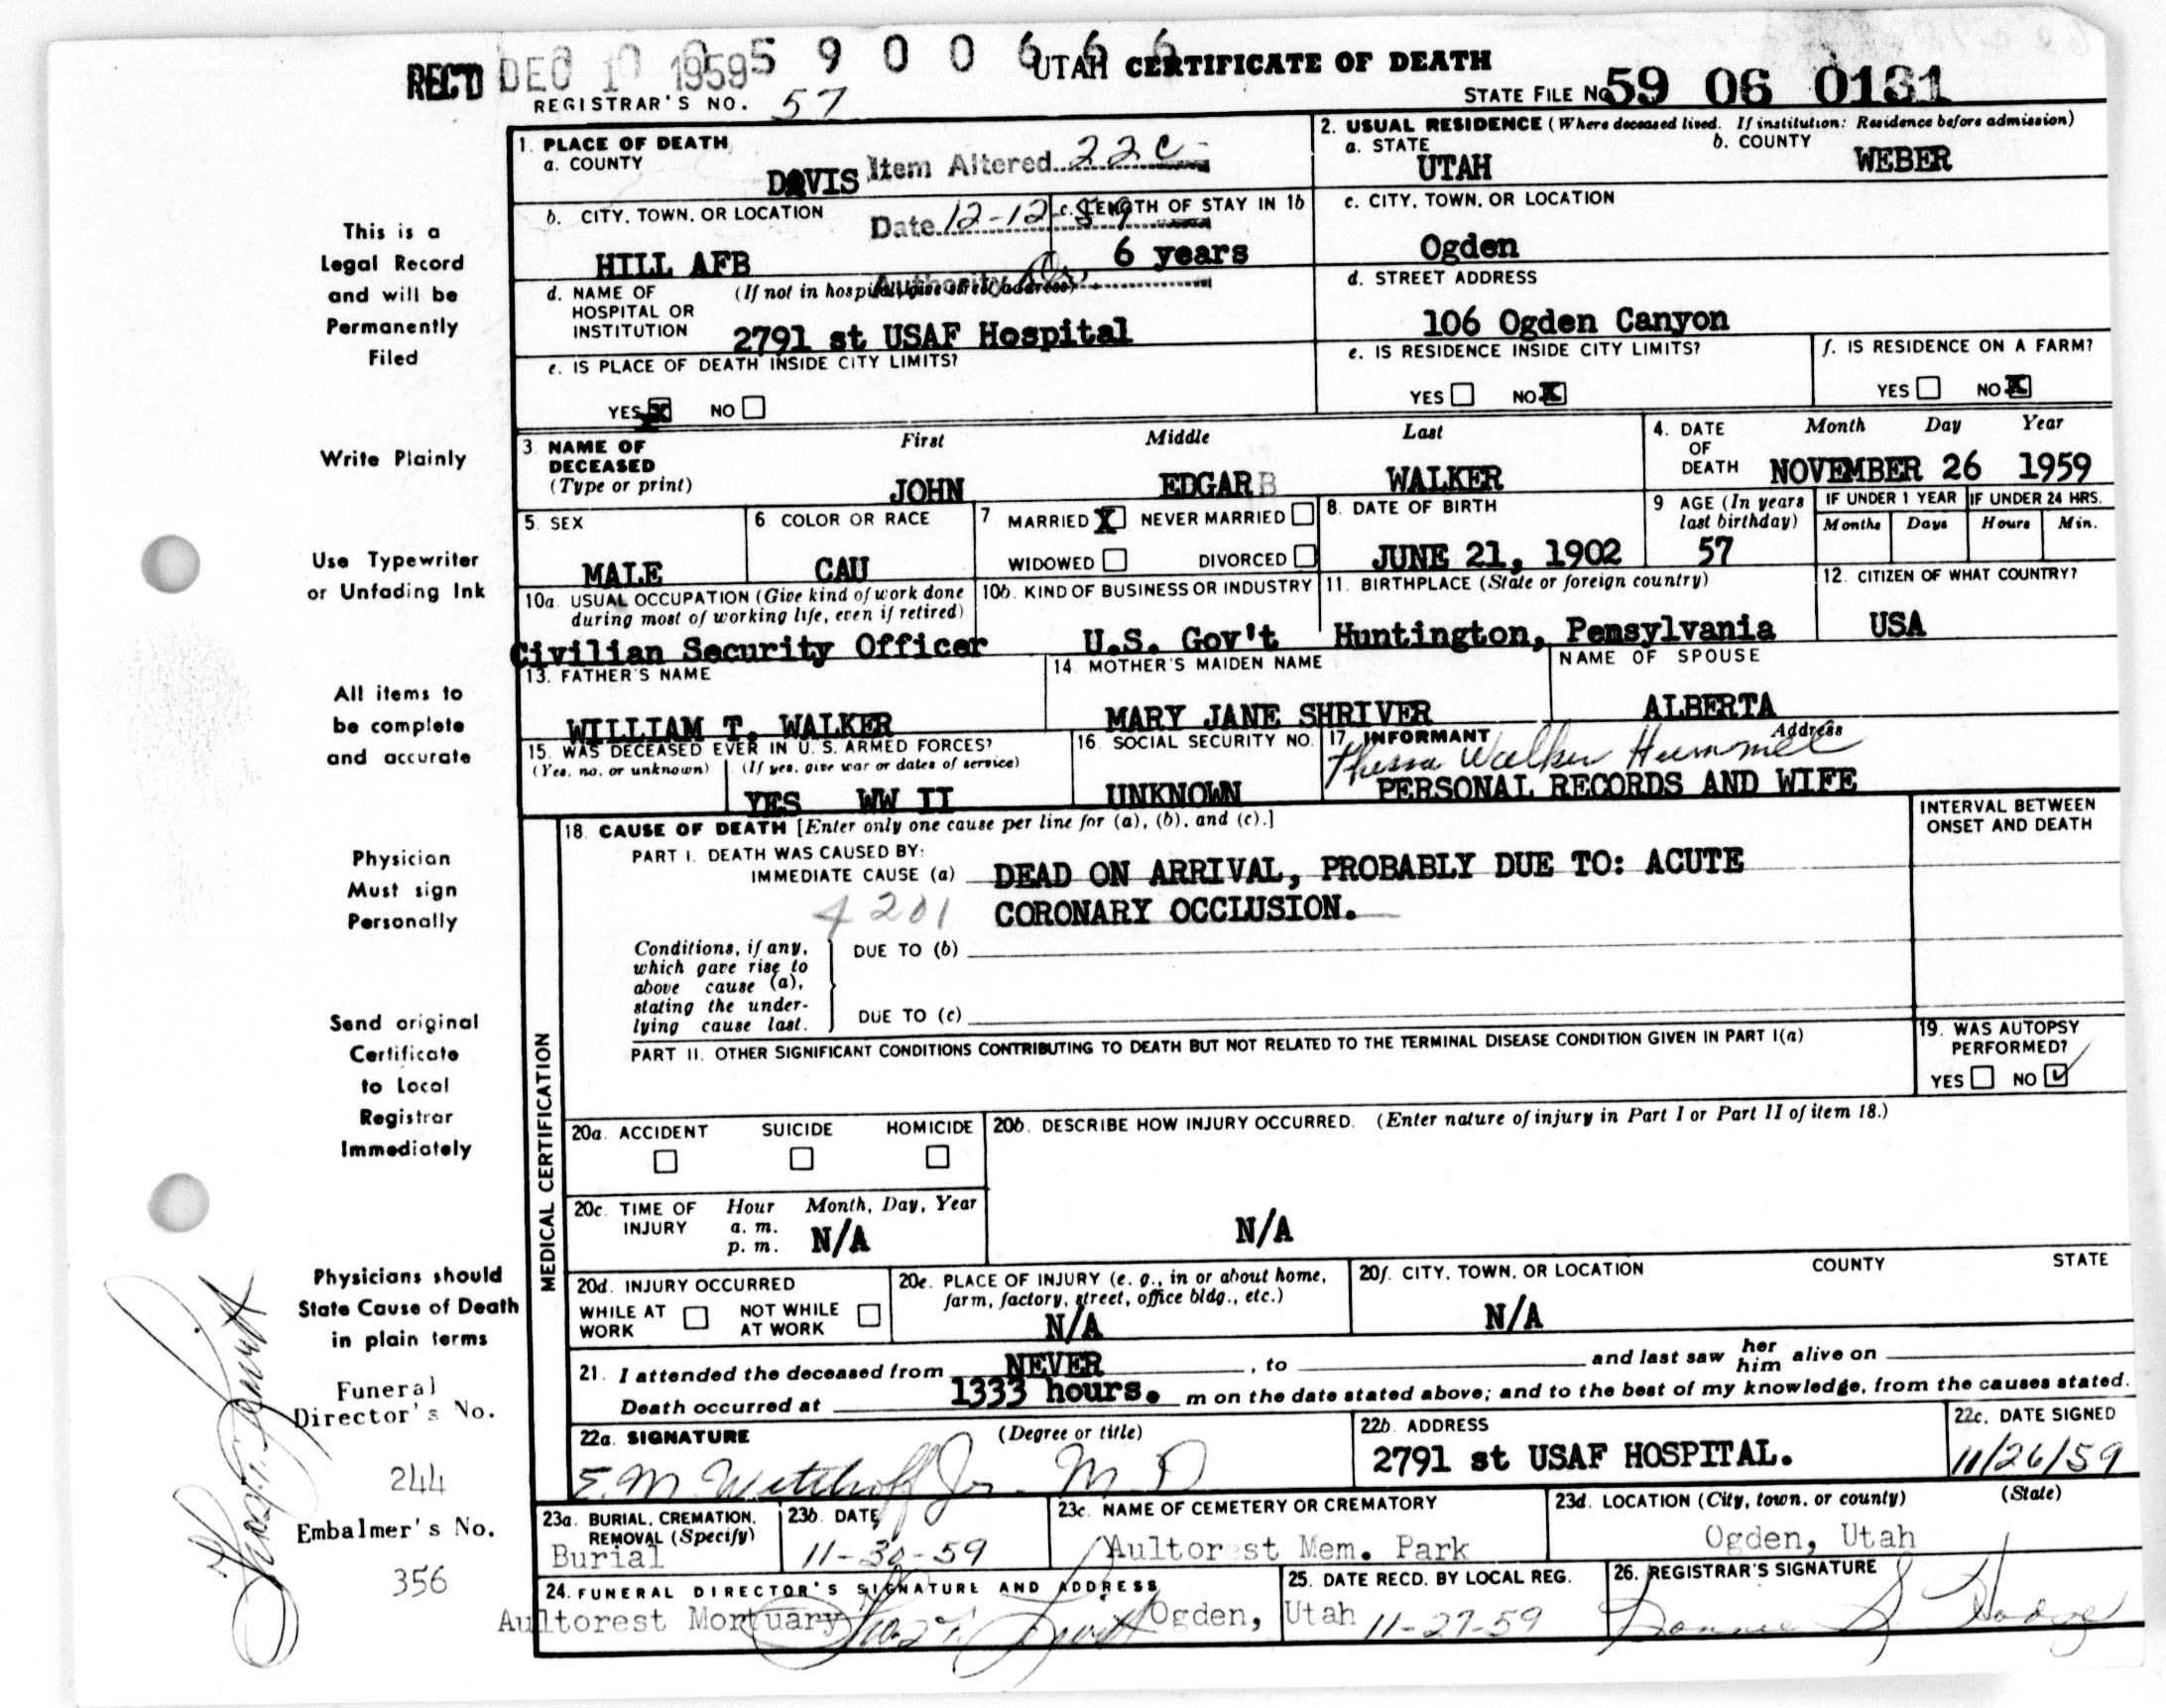 REC'D DEC 10 1959 5 9 0 0 6 6 6 UTAH CERTIFICATE OF DEATH
REGISTRAR'S NO. 57 STATE FILE NO. 59 06 0131
1. PLACE OF DEATH
a. COUNTY
DAVIS Item Altered 22c
2. USUAL RESIDENCE (Where deceased lived. If institution: Residence before admission)
a. STATE b. COUNTY
UTAH WEBER
b. CITY, TOWN, OR LOCATION
Date 12-12-59
HILL AFB
c. LENGTH OF STAY IN 1b
6 years
Authority
c. CITY, TOWN, OR LOCATION
Ogden
d. NAME OF HOSPITAL OR INSTITUTION (If not in hospital, give street address)
2791 st USAF Hospital
d. STREET ADDRESS
106 Ogden Canyon
e. IS PLACE OF DEATH INSIDE CITY LIMITS?
YES X NO
e. IS RESIDENCE INSIDE CITY LIMITS?
YES NO X
f. IS RESIDENCE ON A FARM?
YES NO X
3. NAME OF DECEASED (Type or print)
First Middle Last
JOHN EDGAR B WALKER
4. DATE OF DEATH
Month Day Year
NOVEMBER 26 1959
5. SEX
MALE
6. COLOR OR RACE
CAU
7 MARRIED X NEVER MARRIED
WIDOWED DIVORCED
8. DATE OF BIRTH
JUNE 21, 1902
9 AGE (In years last birthday)
57
IF UNDER 1 YEAR IF UNDER 24 HRS.
Months Days Hours Min.
10a. USUAL OCCUPATION (Give kind of work done during most of working life, even if retired)
Civilian Security Officer
10b. KIND OF BUSINESS OR INDUSTRY
U.S. Gov't
11. BIRTHPLACE (State or foreign country)
Huntington, Pensylvania
12. CITIZEN OF WHAT COUNTRY?
USA
13. FATHER'S NAME
WILLIAM T. WALKER
14. MOTHER'S MAIDEN NAME
MARY JANE SHRIVER
NAME OF SPOUSE
ALBERTA
15. WAS DECEASED EVER IN U. S. ARMED FORCES?
(Yes, no, or unknown) (If yes, give war or dates of service)
YES WW II
16. SOCIAL SECURITY NO.
UNKNOWN
17. INFORMANT Address
Walker Hummel
PERSONAL RECORDS AND WIFE
MEDICAL CERTIFICATION
18. CAUSE OF DEATH [Enter only one cause per line for (a), (b), and (c).]
INTERVAL BETWEEN ONSET AND DEATH
PART I. DEATH WAS CAUSED BY:
IMMEDIATE CAUSE (a) DEAD ON ARRIVAL, PROBABLY DUE TO: ACUTE
4201 CORONARY OCCLUSION.
Conditions, if any, which gave rise to above cause (a), stating the underlying cause last.
DUE TO (b)
DUE TO (c)
PART II. OTHER SIGNIFICANT CONDITIONS CONTRIBUTING TO DEATH BUT NOT RELATED TO THE TERMINAL DISEASE CONDITION GIVEN IN PART I(a)
19. WAS AUTOPSY PERFORMED?
YES NO ✓
20a. ACCIDENT SUICIDE HOMICIDE
20b. DESCRIBE HOW INJURY OCCURRED. (Enter nature of injury in Part I or Part II of item 18.)
N/A
20c. TIME OF INJURY
Hour Month, Day, Year
a. m.
p. m. N/A
20d. INJURY OCCURRED
WHILE AT WORK NOT WHILE AT WORK
20e. PLACE OF INJURY (e. g., in or about home, farm, factory, street, office bldg., etc.)
N/A
20f. CITY, TOWN, OR LOCATION COUNTY STATE
N/A
21. I attended the deceased from NEVER , to and last saw her him alive on
Death occurred at 1333 hours. m on the date stated above; and to the best of my knowledge, from the causes stated.
22a. SIGNATURE (Degree or title)
E. M. Jr. M D
22b. ADDRESS
2791 st USAF HOSPITAL.
22c. DATE SIGNED
11/26/59
23a. BURIAL, CREMATION, REMOVAL (Specify)
Burial
23b. DATE
11-30-59
23c. NAME OF CEMETERY OR CREMATORY
Aultorest Mem. Park
23d. LOCATION (City, town, or county) (State)
Ogden, Utah
24. FUNERAL DIRECTOR'S SIGNATURE AND ADDRESS
Aultorest Mortuary Ogden, Utah
25. DATE RECD. BY LOCAL REG.
11-27-59
26. REGISTRAR'S SIGNATURE
Bonnie S. Hodge
This is a
Legal Record
and will be
Permanently
Filed
Write Plainly
Use Typewriter
or Unfading Ink
All items to
be complete
and accurate
Physician
Must sign
Personally
Send original
Certificate
to Local
Registrar
Immediately
Physicians should
State Cause of Death
in plain terms
Funeral
Director's No.
244
Embalmer's No.
356